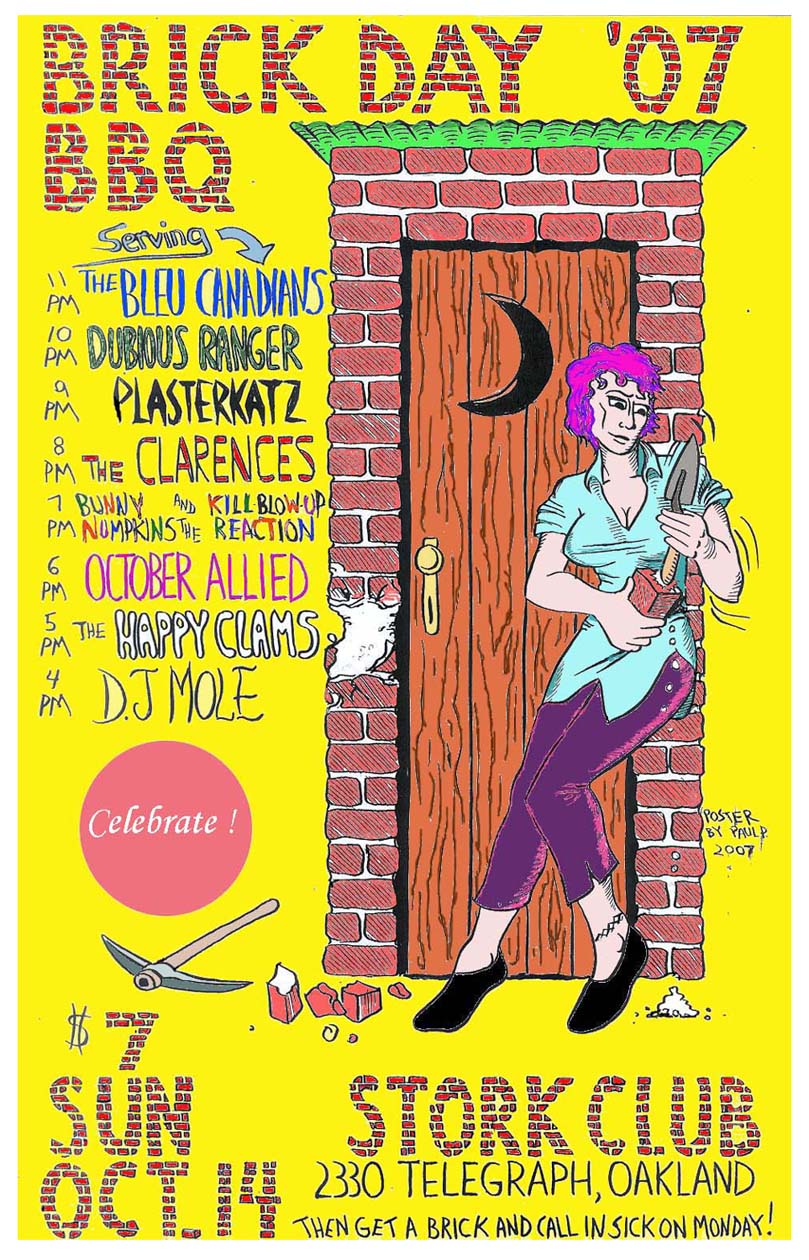 BRICK DAY '07
BBQ
Serving
11 PM THE BLEU CANADIANS
10 PM DUBIOUS RANGER
9 PM PLASTERKATZ
8 PM THE CLARENCES
7 PM BUNNY NUMPKINS AND THE KILL-BLOW-UP REACTION
6 PM OCTOBER ALLIED
5 PM THE HAPPY CLAMS
4 PM D.J MOLE
Celebrate !
POSTER
BY PAUL P.
2007
$7
SUN
OCT. 14
STORK CLUB
2330 TELEGRAPH, OAKLAND
THEN GET A BRICK AND CALL IN SICK ON MONDAY!